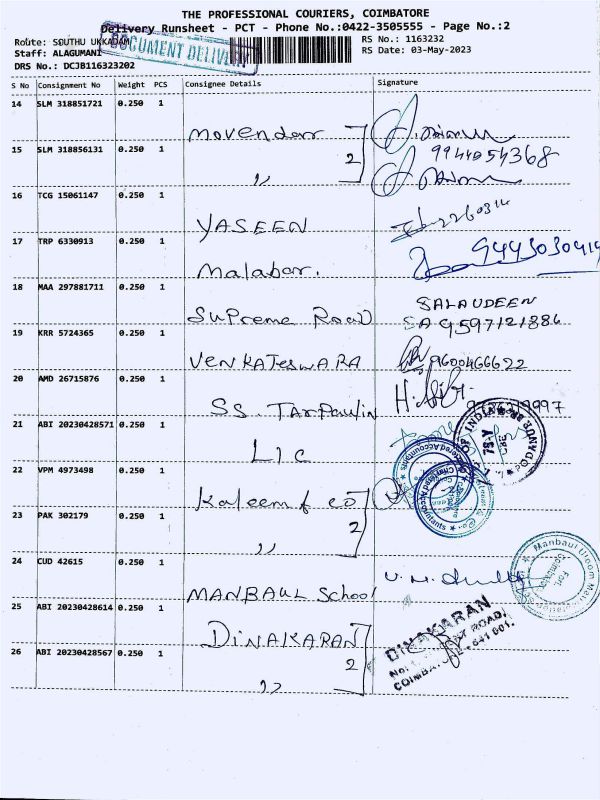 THE PROFESSIONAL COURIERS, COIMBATORE
Delivery Runsheet - PCT - Phone No.:0422-3505555 - Page No.:2
Route: SOUTHU UKKADAM
RS No.: 1163232
Staff: ALAGUMANI
RS Date: 03-May-2023
DOCUMENT DELIVERY
DRS No.: DCJB116323202
S No Consignment No Weight PCS Consignee Details Signature
14 SLM 318851721 0.250 1
Movendarr
15 SLM 318856131 0.250 1
2
9944054368
,,
16 TCG 15061147 0.250 1
YASEEN
17 TRP 6330913 0.250 1
Malabar.
18 MAA 297881711 0.250 1
Supreme Road
SALAUDEEN
9597121886
19 KRR 5724365 0.250 1
VENKATESWARA
9600466622
20 AMD 26715876 0.250 1
SS. Tarpaulin
21 ABI 20230428571 0.250 1
LIC
22 VPM 4973498 0.250 1
Kaleem & co
Chartered Accountants
23 PAK 302179 0.250 1
2
,,
24 CUD 42615 0.250 1
MANBAUL School
Manbaul Uloom
25 ABI 20230428614 0.250 1
DINAKARAN
DINAKARAN
26 ABI 20230428567 0.250 1
2
,,